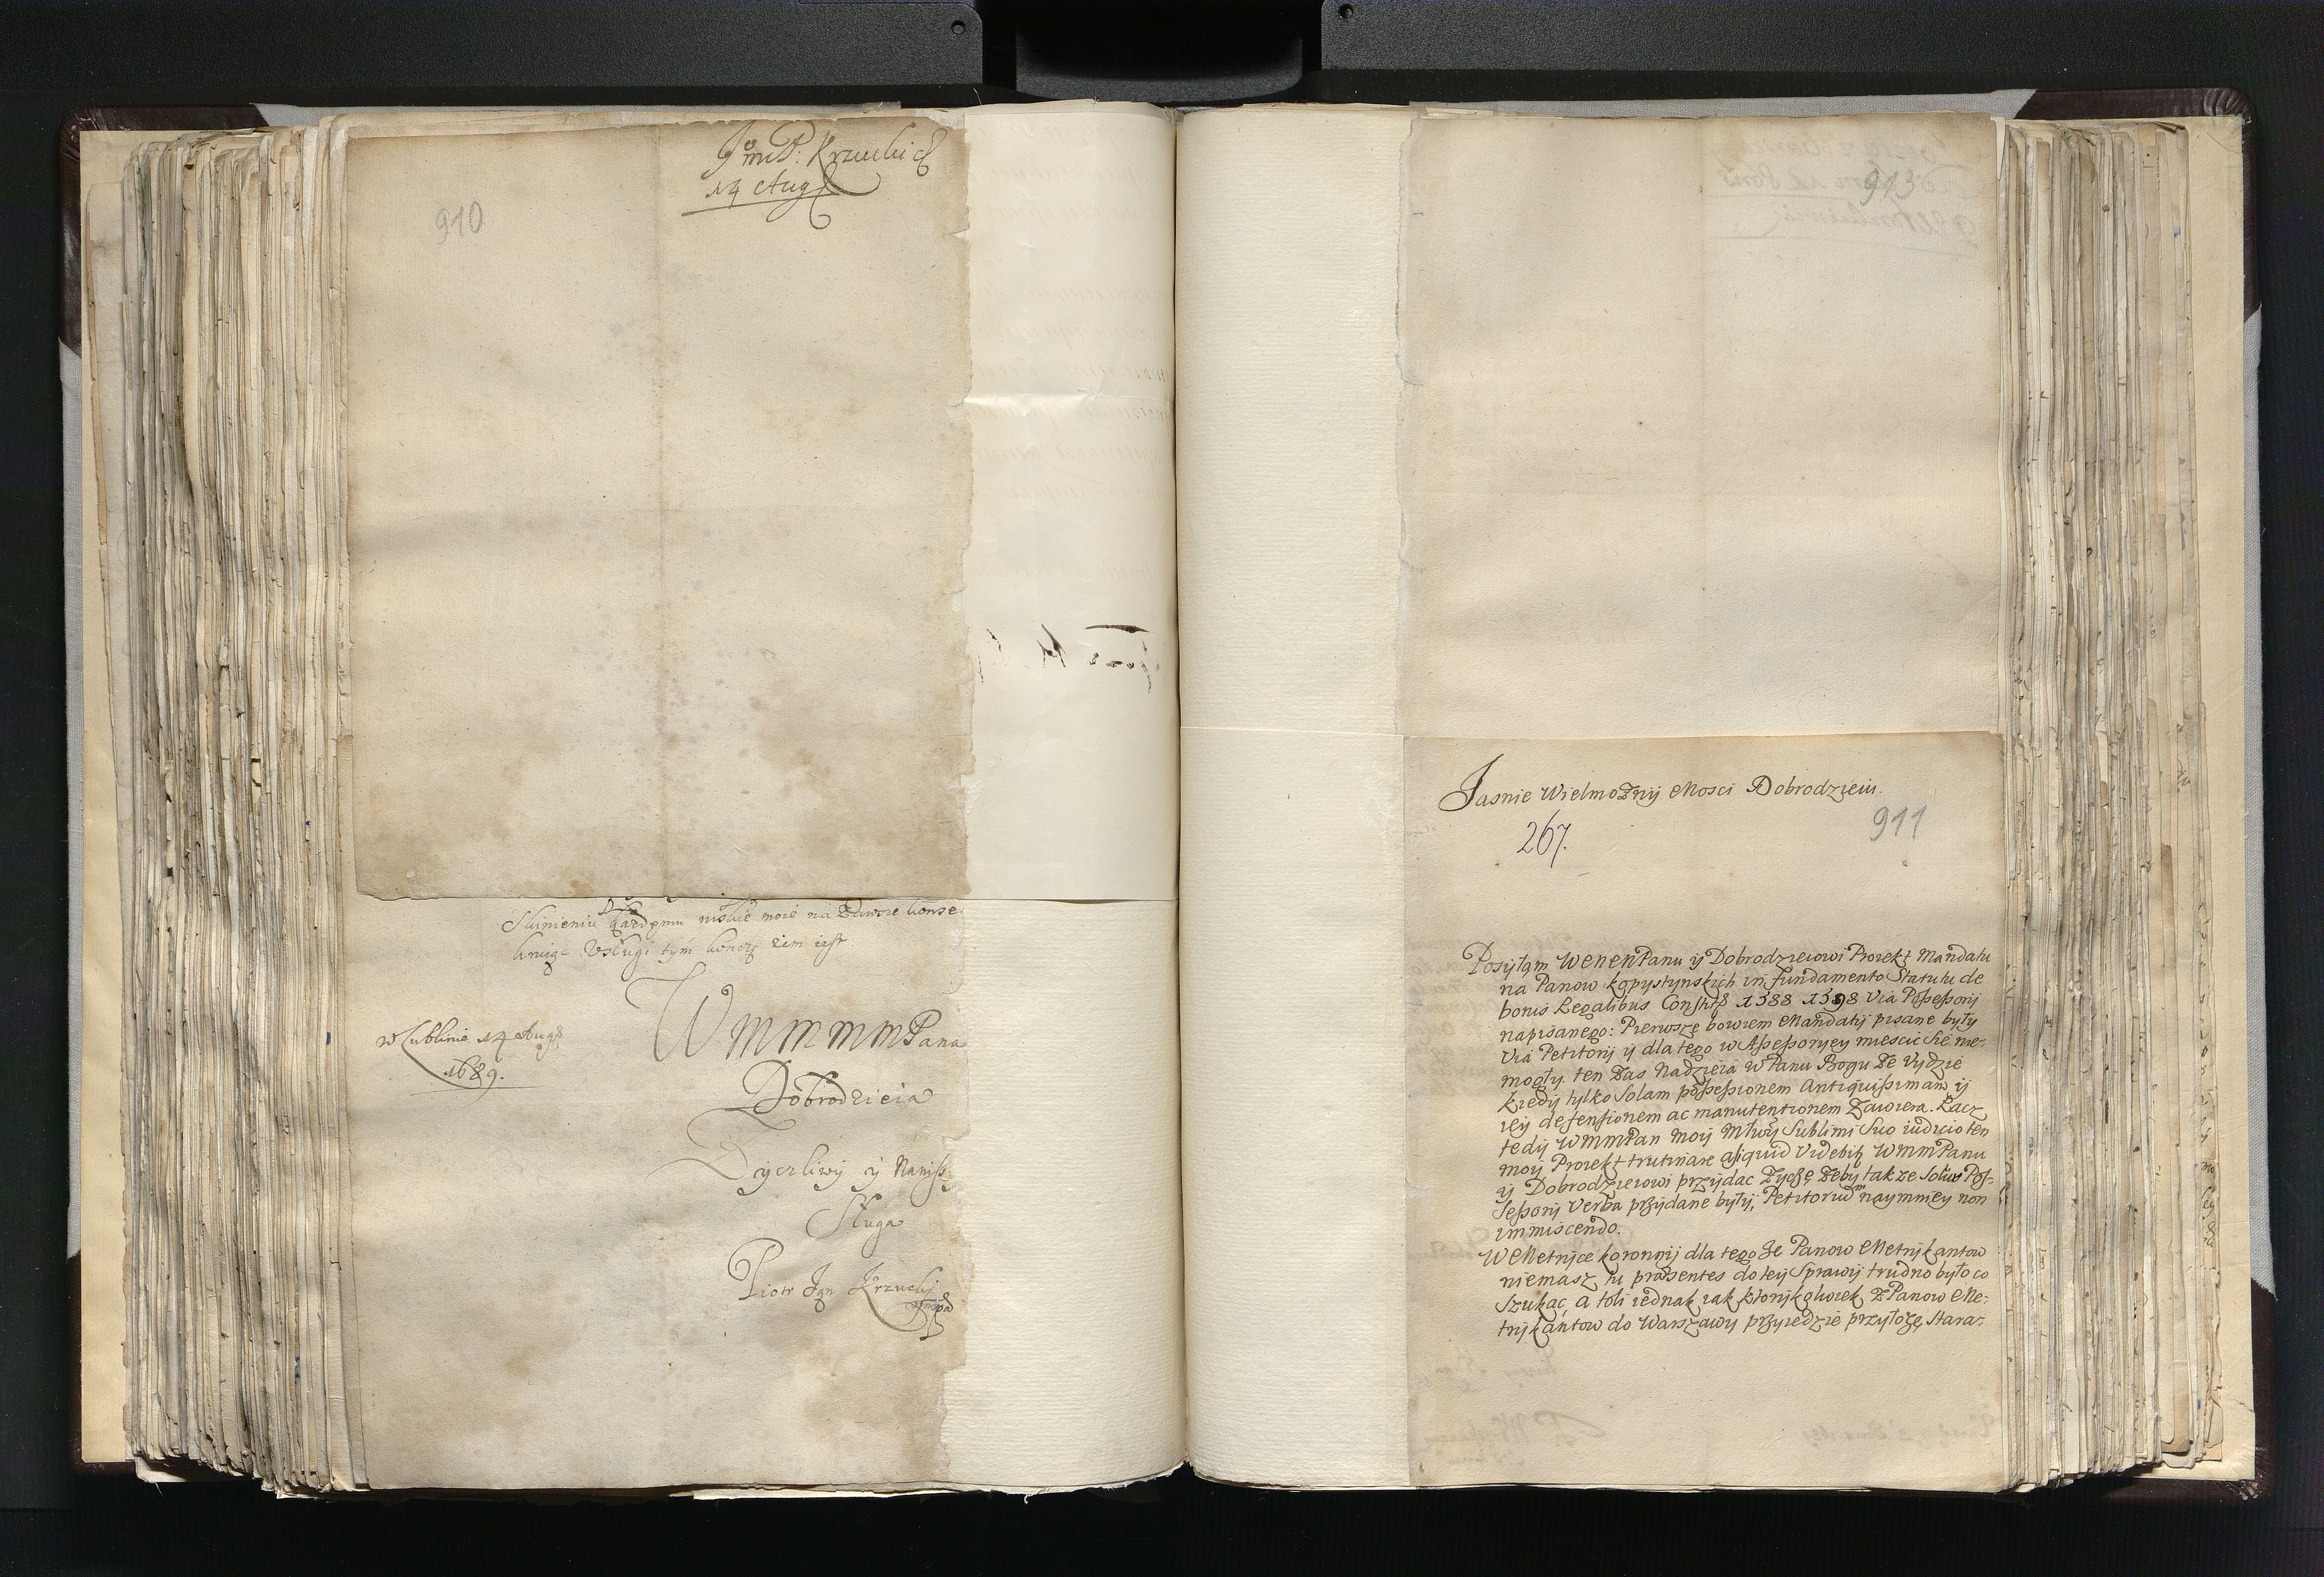 Jmć P. Krzucki
14 Aug
910
Skinieniu każdemu niskie moie na Zawsze konse
kruiąc Vsługi tym konczę żem iest
W M M M M Pana
w Lublinie 14 Aug
1689.
Dobrodzieia
Zyczliwy y Naniss
Sługa
Piotr Jgn Krzucki
mpa
913
Jasnie WielmoZnÿ Mosci Dobrodzieiu.
267.
911
Posyłam WMMPanu ÿ Dobrodzieiowi Proiekt Mandatu
na Panow Kopystynskich in fundamento Statutu de
bonis Regalibus Constit 1588 1598 Via Possessorÿ
napisanego: Pierwsze bowiem Mandatÿ pisane byłÿ
Via Petitorÿ ÿ dla tego w Assessoryey miescic Się nie-
mogłÿ. ten Zas Nadzieia w Panu Bogu Ze Vÿdzie
kiedÿ tylko Solam possessionem Antiquissimam ÿ
ieÿ defensionem ac manutentionem Zawiera. Racz
tedÿ WMMPan Moÿ Młwÿ Sublimi Suo iudicio ten
moÿ Proiekt trutinare aliquid Videbit WMMPanu
ÿ Dobrodzieiowi przÿdac Zyczę Zebÿ takze Solius Pos-
sessorÿ Verba przÿdane byłÿ, Petitorium naymniey non
immiscendo.
W Metrÿce koronnÿ dla tego Ze Panow Metrÿkantow
niemasz tu præsentes do teÿ Sprawÿ trudno było co
Szukac, a toli iednak iak ktorÿkolwiek z Panow Me-
trÿkantow do Warszawÿ przÿiedzie przyłożę Stara-